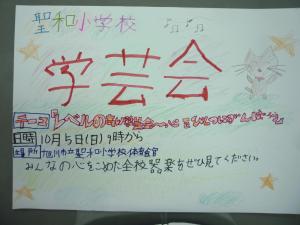 聖和小学校
学芸会
テーマ『レベルの高い学芸会〜心を
日時 10月5日(日) 9時から
場所 旭川市立聖和小学校体育館
みんなの心をこめた全校器楽をぜひ見てください。